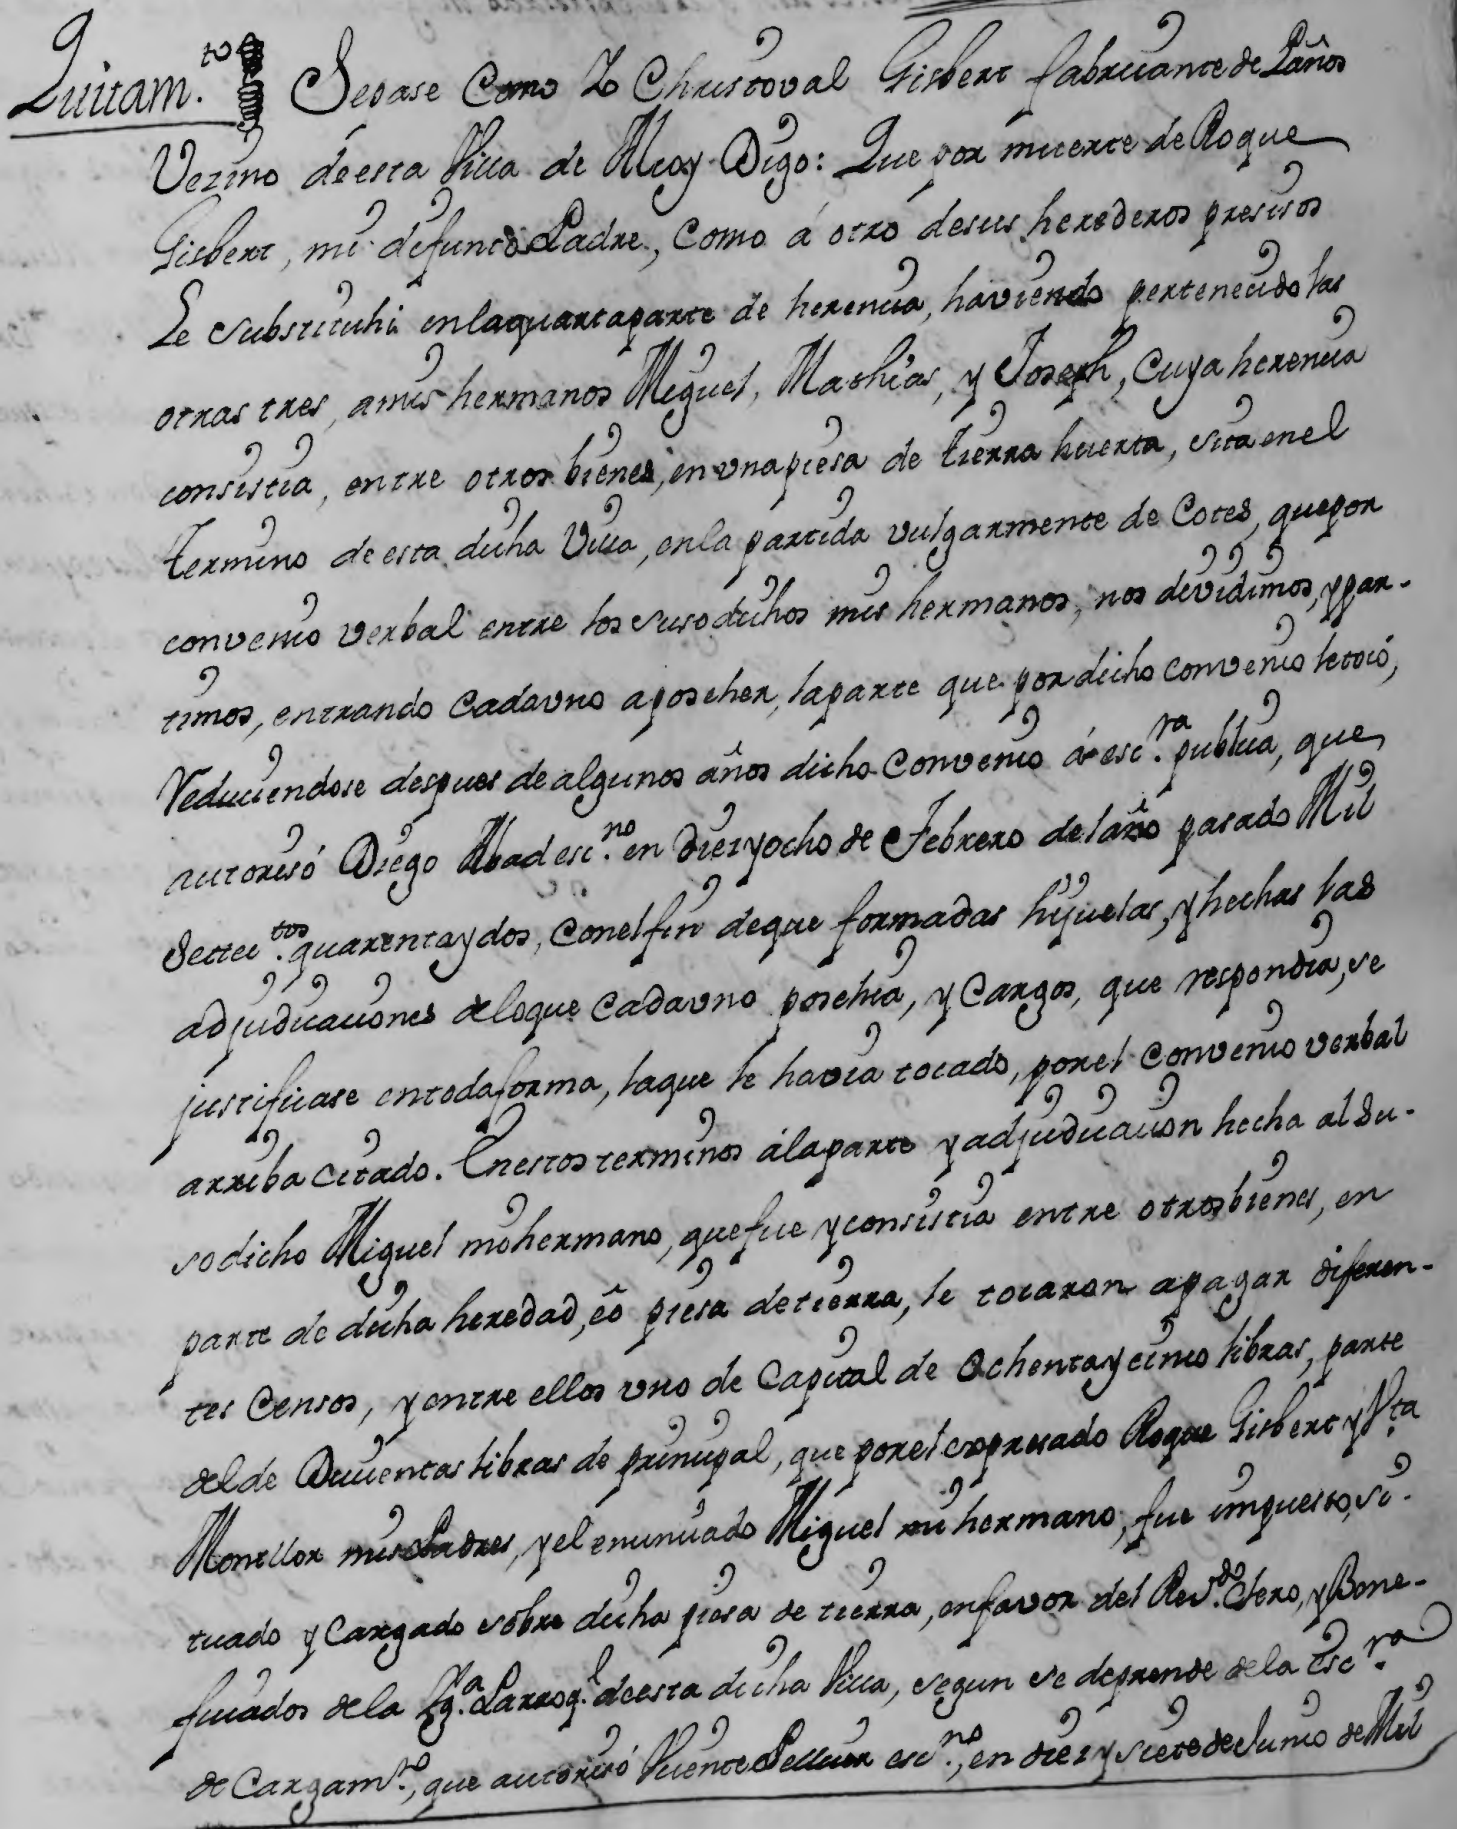 Quitam.to Sepase Como Yo Christoval Gisbert fabricante de Paños
Vezino de esta Villa de Alcoy Digo: Que por muerte de Roque
Gisbert, mi difunto Padre, Como á otro desus herederos presisos
Le substituhi enlaquartaparte de herencia, haviendo pertenecido las
otras tres, amis hermanos Miguel, Mathias, y Joseph, Cuya herencia
consistia, entre otros bienes, en vna piesa de tierra huerta, sita en el
termino de esta dicha Villa, enla partida vulgarmente de Cotes, quepor
convenio verbal entre los susodichos mis hermanos, nos dividimos, y par-
timos, entrando Cadauno aposeher, laparte que por dicho Convenio letocó,
Reduciendose despues de algunos años dicho Convenio á escra. publica, que
autorisó Diego Abad escno. en Diezyocho de Febrero delaño pasado Mil
Settectos. quarentaydos, Conelfin deque formadas hijuelas, y hechas las
adjudicaciones deloque Cadauno posehia, y Cargos, que respondia, se
justificase entodaforma, laque le havia tocado, porel Convenio verbal
arriba Citado. Enestos terminos álaparte y adjudicacion hecha al Su-
sodicho Miguel mi hermano, quefue y consistia entre otros bienes, en
parte de dicha heredad, eó piesa detierra, le tocaron apagar diferen-
tes Censos, y entre ellos vno de Capital de Ochentaycinco libras, parte
delde Ducientas libras de principal, que porel expresado Roque Gisbert y Vta
Montllor mis Padres, y el enunciado Miguel mi hermano, fue impuesto, si-
tuado y Cargado sobre dicha piesa de tierra, enfavor del Revdo. Clero, y Bene-
ficiados de la Yga. Parroql. deesta dicha Villa, segun se deprende dela Escra.
de Cargamto., que autorisó Vicente Pellicer escno., en diez y siete de Junio de Mil